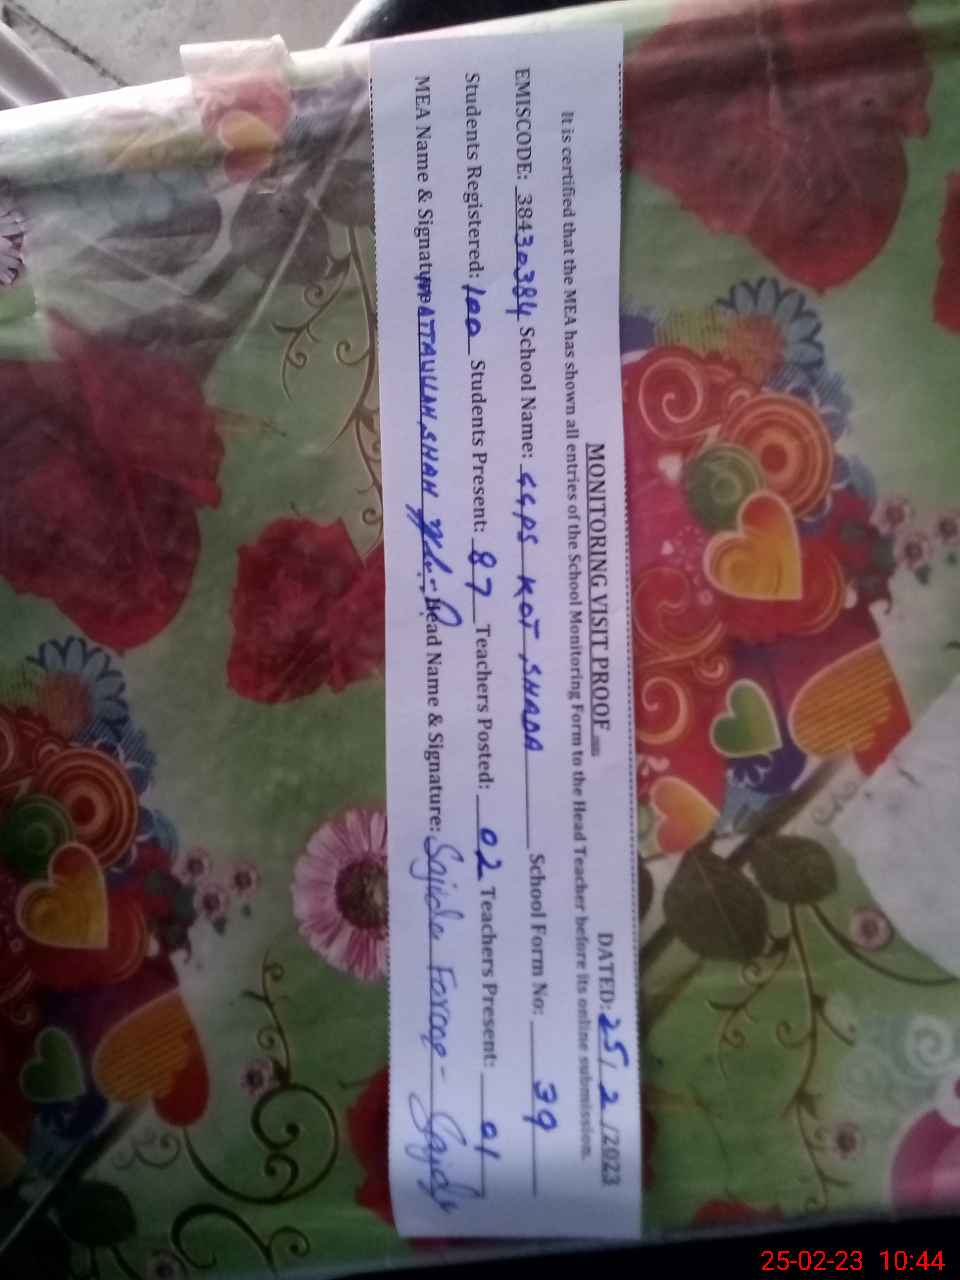 MONITORING VISIT PROOF DATED: 25/2/2023
It is certified that the MEA has shown all entries of the School Monitoring Form to the Head Teacher before its online submission.
EMISCODE: 38430384 School Name: GGPS KOT SHADA School Form No: 39
Students Registered: 100 Students Present: 87 Teachers Posted: 02 Teachers Present: 01
MEA Name & Signature ATTAULLAH SHAH Head Name & Signature: Sajida
25-02-23 10:44